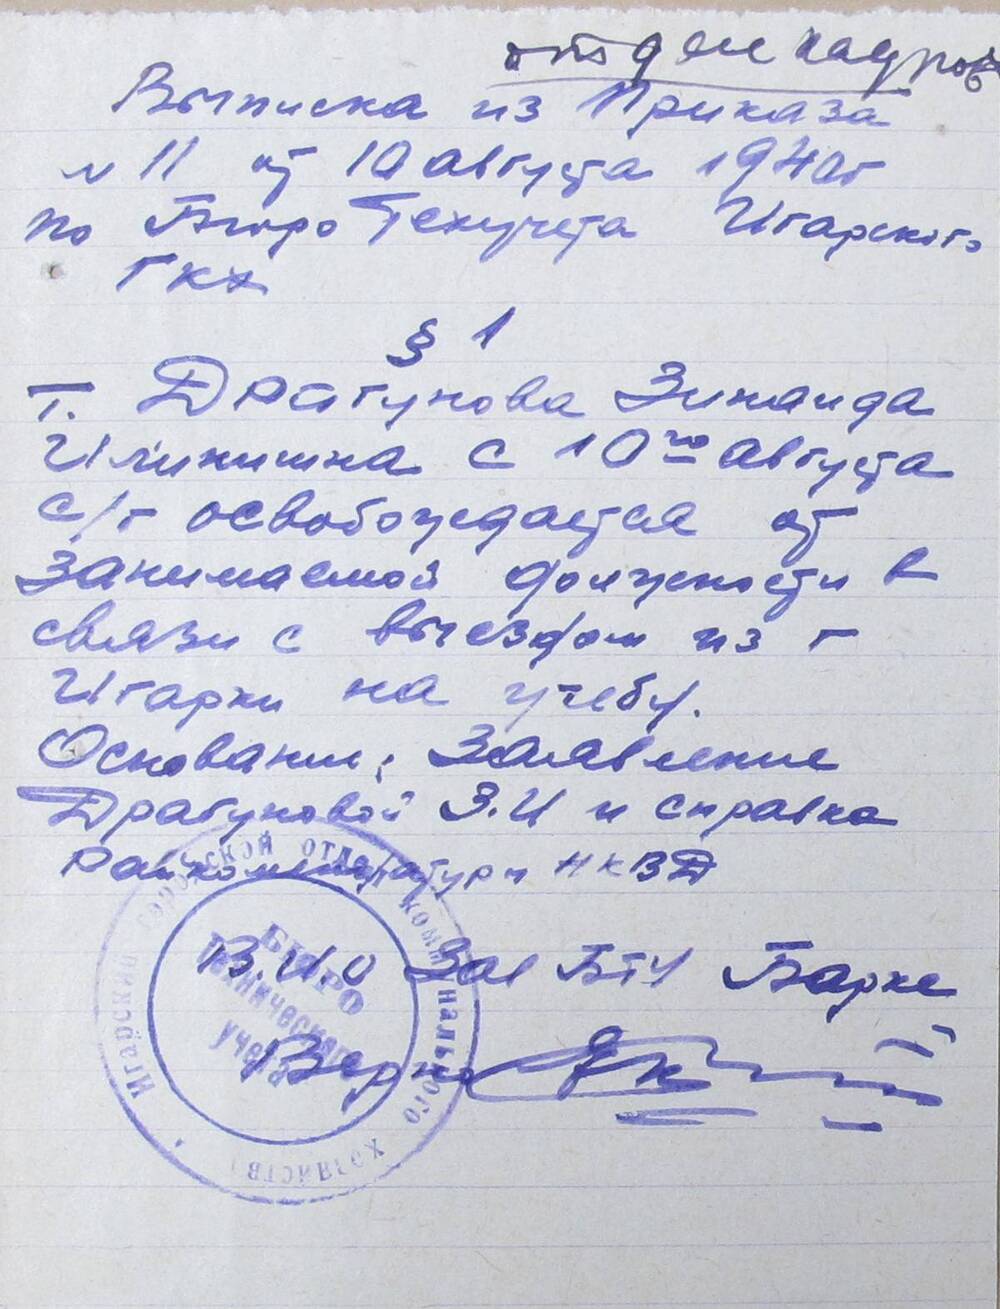 отдел кадров
Выписка из Приказа
№ 11 от 10 августа 1940г
по Бюро Техучета Игарского
ГКХ
§ 1
Т. Драгунова Зинаида
Илинишна с 10го августа
с/г освобождается от
занимаемой должности в
связи с выездом из г
Игарки на учебу.
Основание; Заявление
Драгуновой З.И и справка
Райкомендатуры НКВД
В.И.О Зав БТУ Барке
Верно
Игарский городской отдел коммунального хозяйства
БЮРО
технического
учета